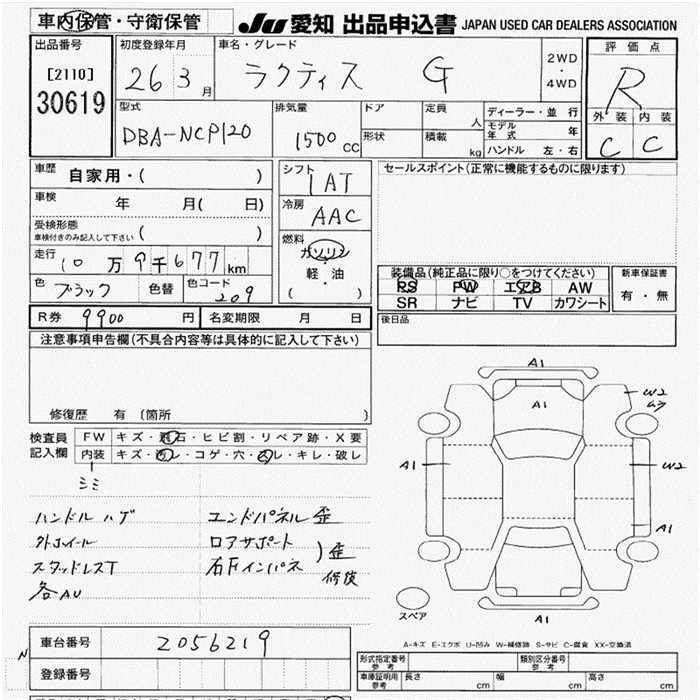 車内保管・守衛保管
JU 愛知 出品申込書 JAPAN USED CAR DEALERS ASSOCIATION
出品番号
[2110]
30619
初度登録年月
26 3 月
車名・グレード
ラクティス G
2WD
・
4WD
評価点
R
外装 内装
C C
型式
DBA-NCP120
排気量
1500 CC
ドア
形状
定員 人
積載 kg
ディーラー・並行
モデル年式 年
ハンドル 左・右
車歴 自家用・( )
車検 年 月( 日)
受検形態
車検付きのみ記入して下さい ( )
走行
10万9千677km
色 ブラック 色替 色コード 209
シフト
1 AT
冷房
AAC
燃料
ガソリン
・
軽・油
( )
セールスポイント(正常に機能するものに限ります)
装備品(純正品に限り○をつけてください)
PS PW エアB AW
SR ナビ TV カワシート
新車保証書
有・無
後日品
R券 9900 円 名変期限 月 日
注意事項申告欄(不具合内容等は具体的に記入して下さい)
修復歴 有 〔箇所 〕
検査員
記入欄
FW キズ・飛石・ヒビ割・リペア跡・X要
内装 キズ・汚レ・コゲ・穴・スレ・キレ・破レ
ミミ
ハンドルハゲ
外ホイール
スタッドレスT
各AU
エンドパネル歪
ロアサポート
右Fインパネ
)歪
修復
A1
A1
W2
ムラ
A1
W2
A1
A1
スペア
A-キズ E-エクボ U-凹み W-補修跡 S-サビ C-腐食 XX-交換済
車台番号 2056219
N
登録番号
形式指定番号
参考
類別区分番号
参考
車庫証明用
参考
長さ cm 幅 cm 高さ cm